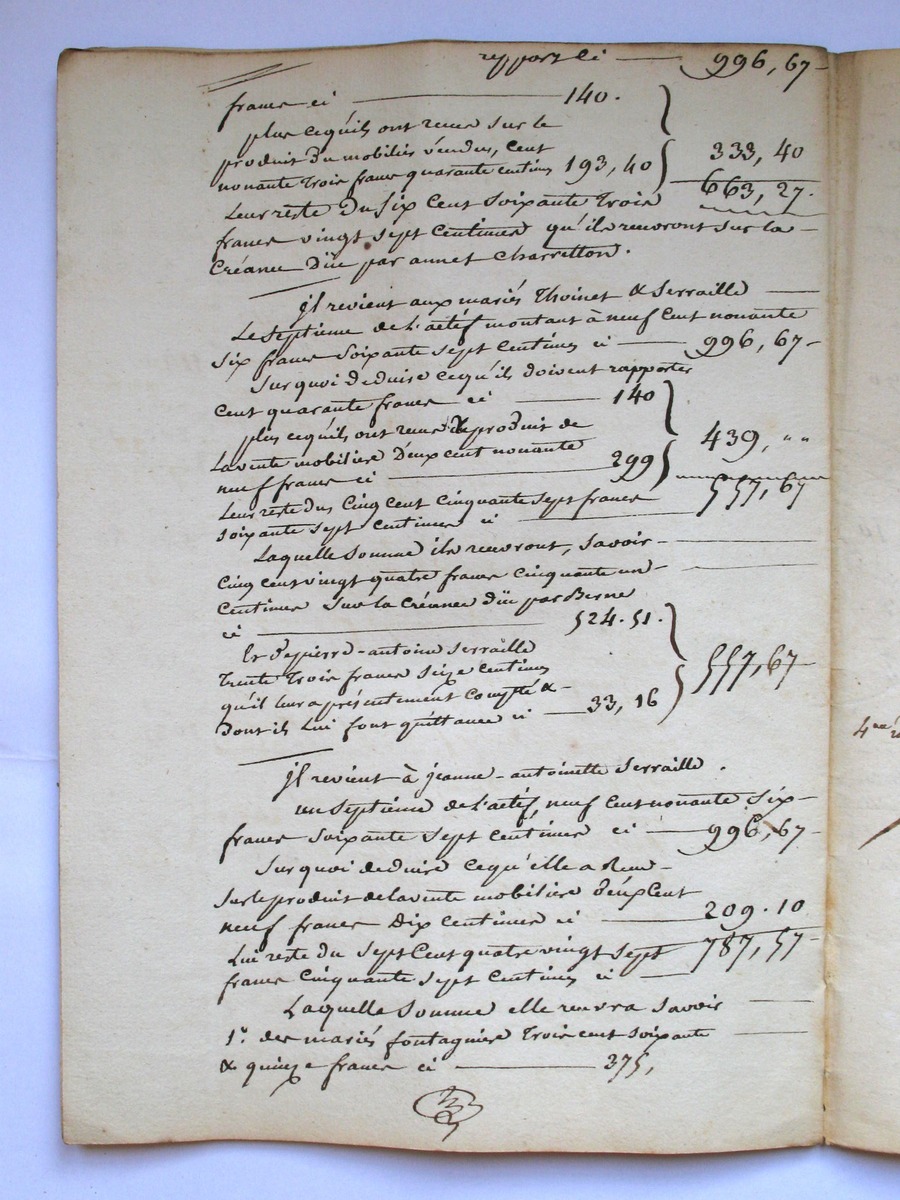 report ci 996, 67
francs ci 140.
plus cequils ont recus sur le
produit du mobilier vendus, cent
nonante trois francs quarante centimes 193, 40 333, 40
Leur reste du six cent soixante trois 663, 27.
francs vingt sept centimes qu'ils recevront sur la
Créance düe par annet charretton.
jl revient aux mariés Thoinet & Serraille
Le septieme de l'actéf montant à neuf cent nonante
six francs soixante sept centimes ci 996, 67
Sur quoi deduire cequ'ils doivent rapporter
cent quarante francs ci 140
plus cequils ont recus produit de
La vente mobiliere deux cent nonante 439, " "
neuf francs ci 299
Leur reste dus cinq cent cinquante sept francs 557, 67
soixante sept centimes ci
Laquelle somme ils recevront, savoir
cinq cent vingt quatre francs cinquante un
centimes sur la Créance düe par Berne
ci 524. 51.
Et de pierre-antoine Serraille
trente trois francs seize centimes 557, 67
qu'il leur a présentement compté &
dont ils lui font quittance ci 33, 16
jl revient à jeanne-antoinette Serraille.
un septieme de l'actéf, neuf cent nonante six
francs soixante sept centimes ci 996, 67
Sur quoi deduire cequ'elle a Recus
sur le produit de la vente mobiliere deux cent
neuf francs dix centimes ci 209. 10
Lui reste du sept cent quatre vingt sept 787, 57
francs cinquante sept centimes ci
Laquelle somme elle recevra savoir
1.° des mariés fontagniere trois cent soixante
& quinze francs ci 375,